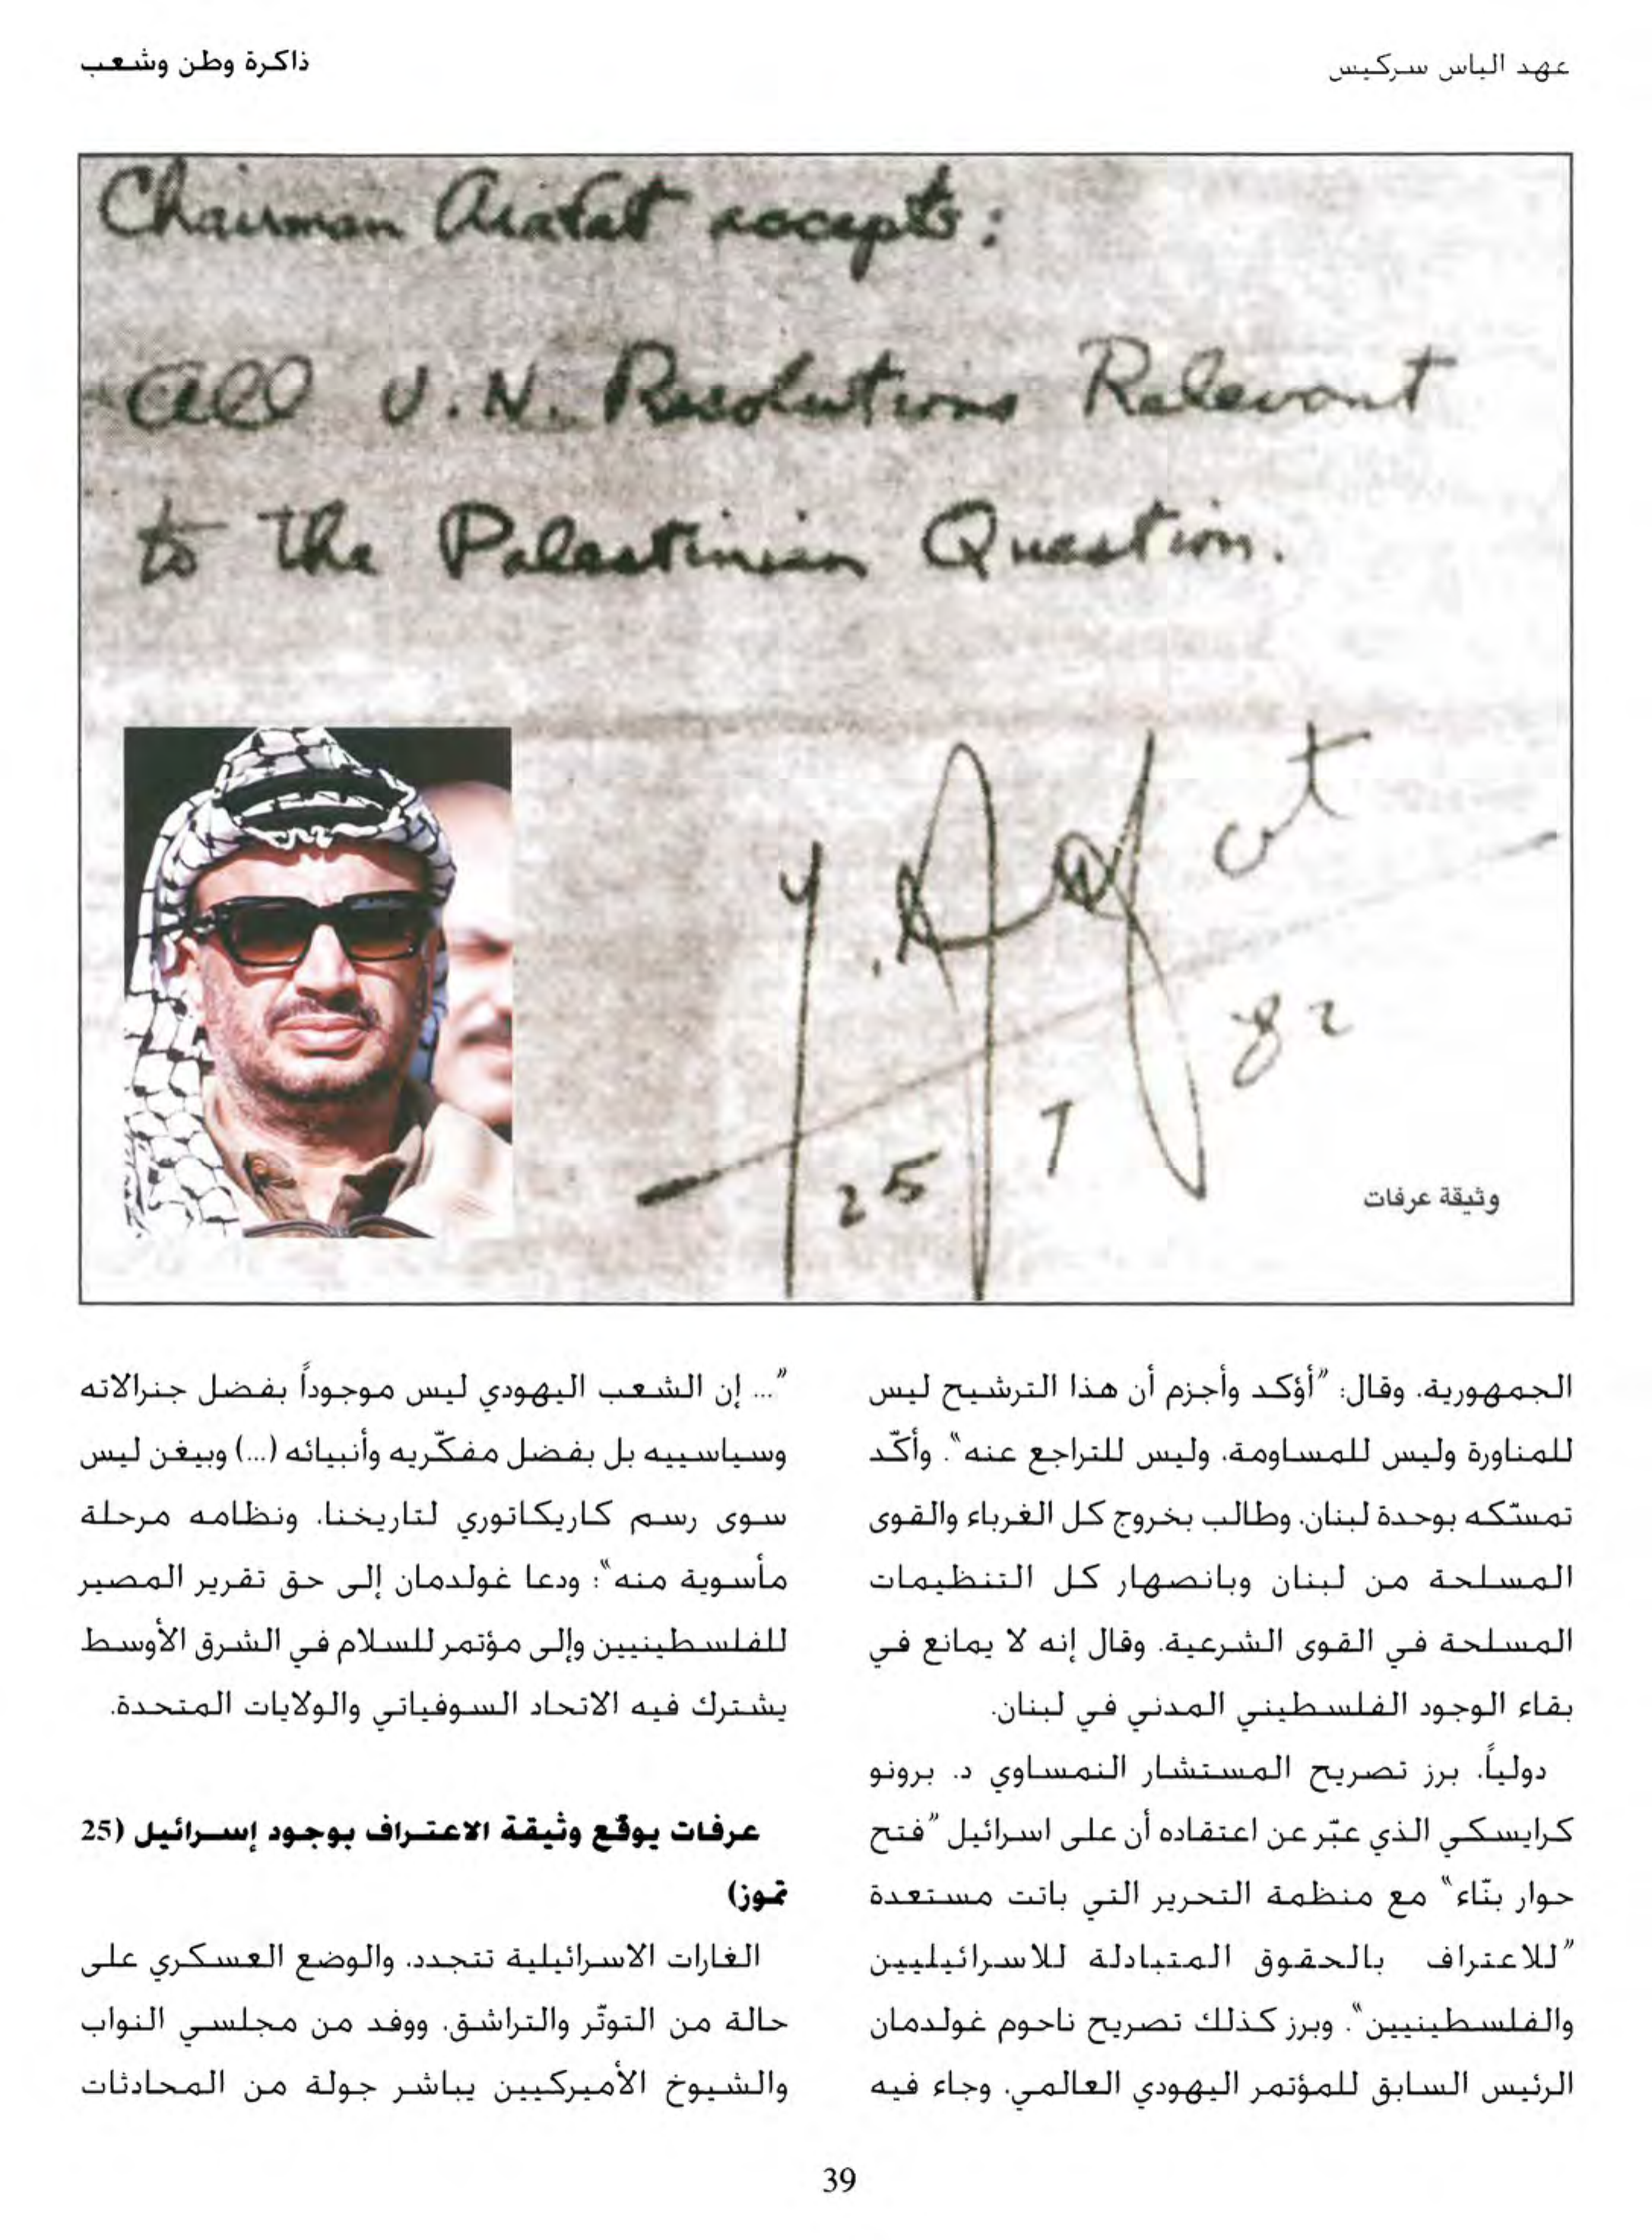 عهد الياس سركيس
ذاكرة وطن وشعب
Chairman Arafat accepts:
All U.N. Resolutions Relevant
to the Palestinian Question.
Y. Arafat
25 7 82
وثيقة عرفات
الجمهورية. وقال: "أؤكد وأجزم أن هذا الترشيح ليس
للمناورة وليس للمساومة، وليس للتراجع عنه". وأكّد
تمسّكه بوحدة لبنان، وطالب بخروج كل الغرباء والقوى
المسلحة من لبنان وبانصهار كل التنظيمات
المسلحة في القوى الشرعية. وقال إنه لا يمانع في
بقاء الوجود الفلسطيني المدني في لبنان.
دولياً، برز تصريح المستشار النمساوي د. برونو
كرايسكي الذي عبّر عن اعتقاده أن على اسرائيل "فتح
حوار بنّاء" مع منظمة التحرير التي باتت مستعدة
"للاعتراف بالحقوق المتبادلة للاسرائيليين
والفلسطينيين". وبرز كذلك تصريح ناحوم غولدمان
الرئيس السابق للمؤتمر اليهودي العالمي، وجاء فيه
"... إن الشعب اليهودي ليس موجوداً بفضل جنرالاته
وسياسييه بل بفضل مفكّريه وأنبيائه (...) وبيغن ليس
سوى رسم كاريكاتوري لتاريخنا، ونظامه مرحلة
مأسوية منه"؛ ودعا غولدمان إلى حق تقرير المصير
للفلسطينيين وإلى مؤتمر للسلام في الشرق الأوسط
يشترك فيه الاتحاد السوفياتي والولايات المتحدة.
عرفات يوقّع وثيقة الاعتراف بوجود إسرائيل (25
تموز)
الغارات الاسرائيلية تتجدد، والوضع العسكري على
حالة من التوتّر والتراشق. ووفد من مجلسي النواب
والشيوخ الأميركيين يباشر جولة من المحادثات
39